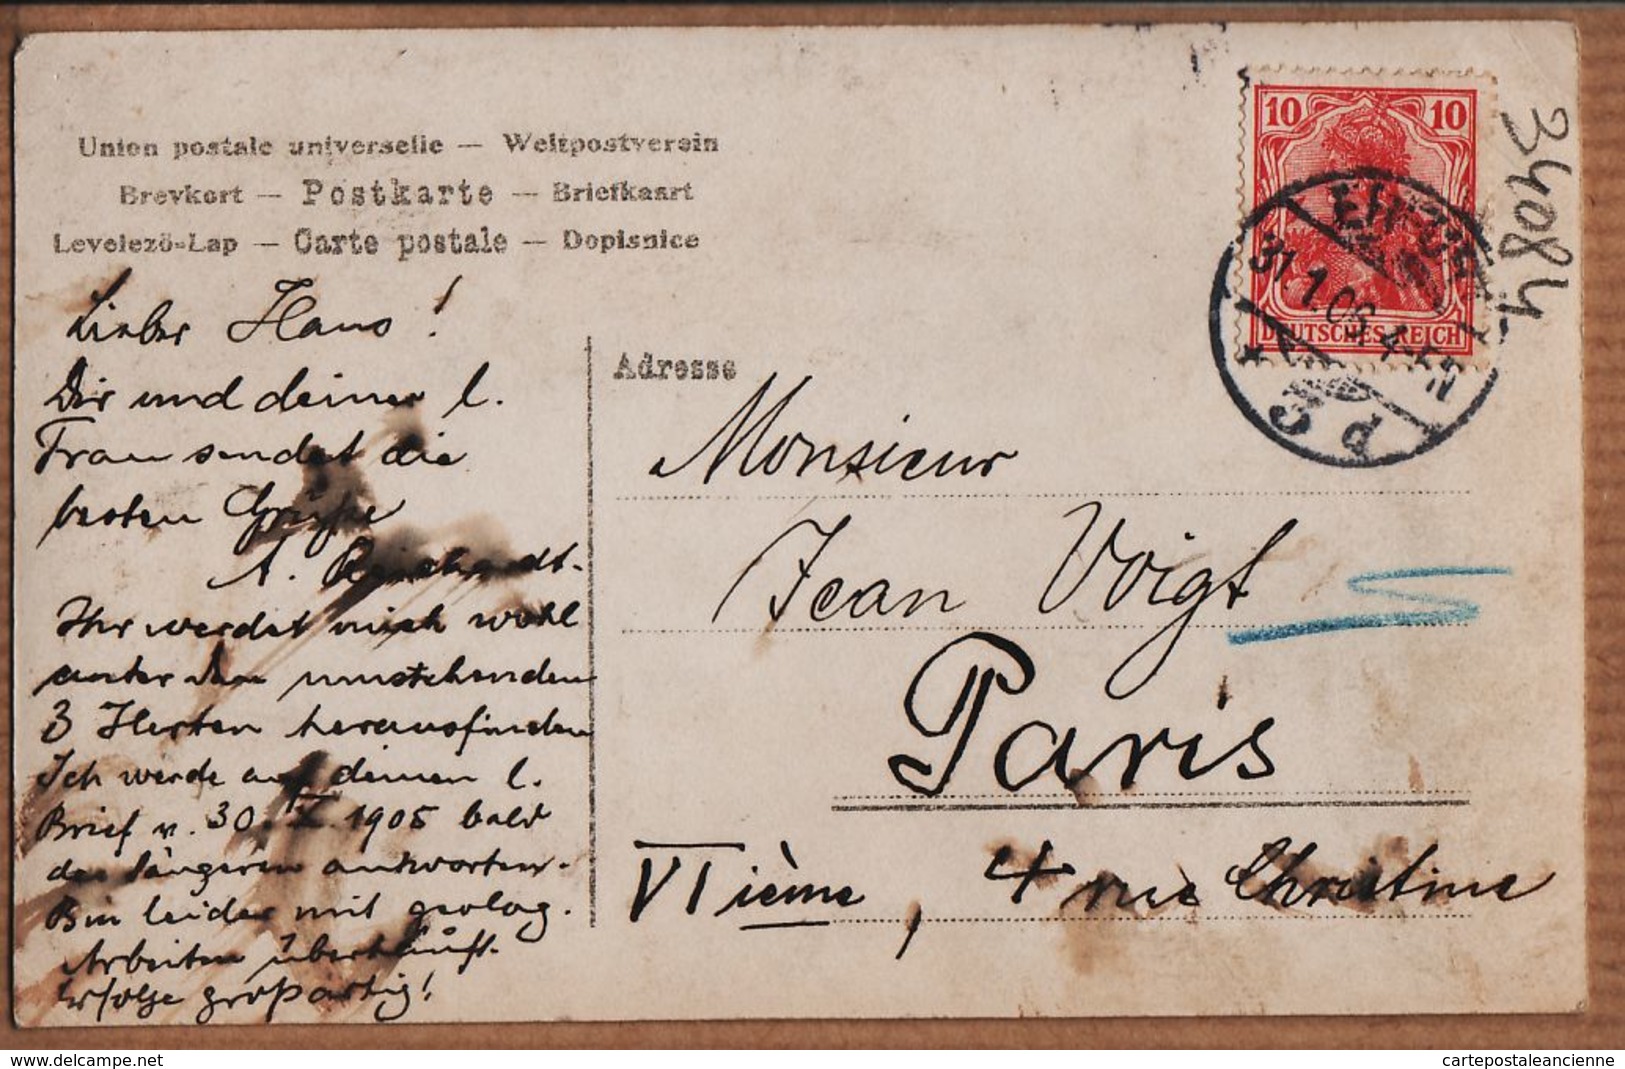 Union postale universelle — Weltpostverein
Brevkort — Postkarte — Briefkaart
Levelező-Lap — Carte postale — Dopisnice
Lieber Hans!
Dir und deiner l.
Frau sendet die
besten Grüße
A. Reichardt.
Ihr werdet mich wohl
unter den umstehenden
3 Herren herausfinden
Ich werde auf deinen l.
Brief v. 30. X. 1905 bald
des längeren antworten.
Bin leider mit geolog.
Arbeiten überhäuft.
Erfolge großartig!
Adresse
Monsieur
Jean Voigt
Paris
VIième, 4 rue Christine
10 10
DEUTSCHES REICH
31.1.06 4-5N
* d
34084
http://www.delcampe.net
cartepostaleancienne